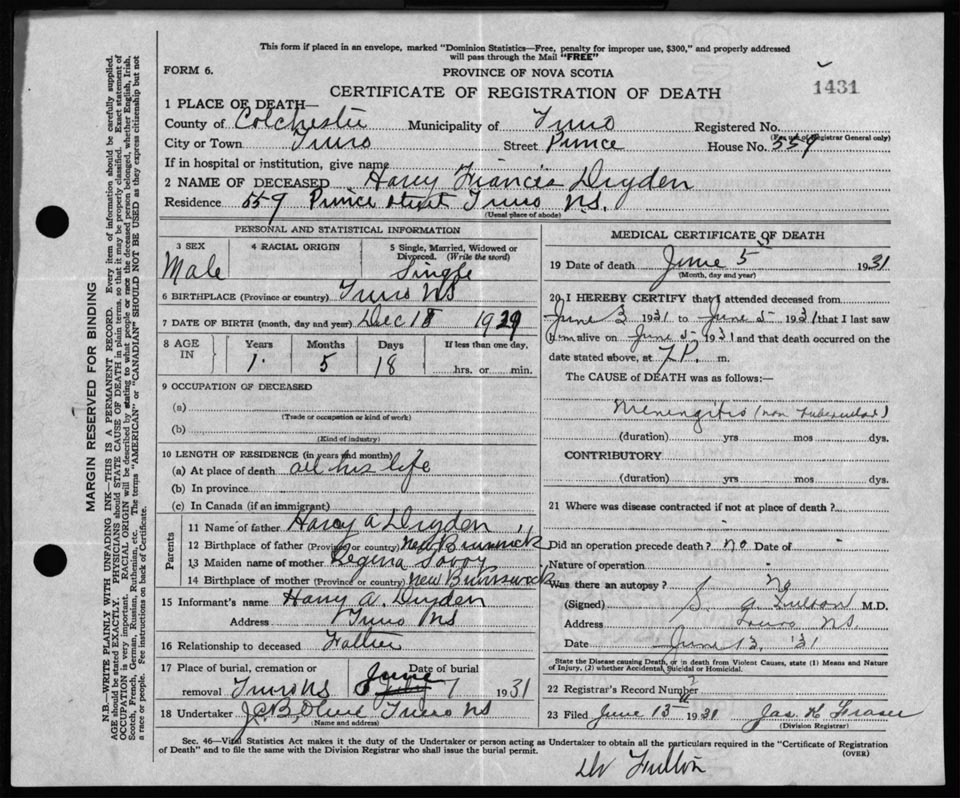 This form if placed in an envelope, marked "Dominion Statistics—Free, penalty for improper use, $300," and properly addressed
will pass through the Mail "FREE"
FORM 6.
PROVINCE OF NOVA SCOTIA
1431
CERTIFICATE OF REGISTRATION OF DEATH
1 PLACE OF DEATH—
County of Colchester Municipality of Truro Registered No.
(For use of Registrar General only)
City or Town Truro Street Prince House No. 559
If in hospital or institution, give name
2 NAME OF DECEASED Harry Francis Dryden
Residence 559 Prince Street Truro N.S.
(Usual place of abode)
PERSONAL AND STATISTICAL INFORMATION
3 SEX 4 RACIAL ORIGIN 5 Single, Married, Widowed or
Divorced. (Write the word)
Male Single
6 BIRTHPLACE (Province or country) Truro NS
7 DATE OF BIRTH (month, day and year) Dec 18 1929
8 AGE IN Years Months Days If less than one day,
1 5 18 hrs. or min.
9 OCCUPATION OF DECEASED
(a)
(Trade or occupation or kind of work)
(b)
(Kind of industry)
10 LENGTH OF RESIDENCE (in years and months)
(a) At place of death all his life
(b) In province
(c) In Canada (if an immigrant)
Parents
11 Name of father Harry A Dryden
12 Birthplace of father (Province or country) New Brunswick
13 Maiden name of mother Regina Savoy
14 Birthplace of mother (Province or country) New Brunswick
15 Informant's name Harry A. Dryden
Address Truro NS
16 Relationship to deceased Father
17 Place of burial, cremation or Date of burial
removal Truro NS June 7 1931
18 Undertaker J.C.B. Olive Truro NS
(Name and address)
MEDICAL CERTIFICATE OF DEATH
19 Date of death June 5 1931
(Month, day and year)
20 I HEREBY CERTIFY that I attended deceased from
June 3 1931 to June 5 1931 that I last saw
him alive on June 5 1931 and that death occurred on the
date stated above, at 7 P. m.
The CAUSE OF DEATH was as follows:—
Meningitis (non tubercular)
(duration) yrs mos dys.
CONTRIBUTORY
(duration) yrs mos dys.
21 Where was disease contracted if not at place of death?
Did an operation precede death? no Date of
Nature of operation
Was there an autopsy? No
(Signed) S. G. Fulton M.D.
Address Truro NS.
Date June 13, '31
State the Disease causing Death, or in death from Violent Causes, state (1) Means and Nature
of Injury, (2) whether Accidental, Suicidal or Homicidal.
22 Registrar's Record Number
23 Filed June 13 1931 Jas H Fraser
(Division Registrar)
Sec. 46—Vital Statistics Act makes it the duty of the Undertaker or person acting as Undertaker to obtain all the particulars required in the "Certificate of Registration
of Death" and to file the same with the Division Registrar who shall issue the burial permit.
(OVER)
Dr Fulton
MARGIN RESERVED FOR BINDING
N.B.—WRITE PLAINLY WITH UNFADING INK—THIS IS A PERMANENT RECORD. Every item of information should be carefully supplied.
AGE should be stated EXACTLY. PHYSICIANS should STATE CAUSE OF DEATH in plain terms, so that it may be properly classified. Exact statement of
OCCUPATION is very important. RACIAL ORIGIN will be described by stating to what people or race the deceased person belonged, whether English, Irish,
Scotch, French, German, Russian, Ruthenian, etc. The terms "AMERICAN" or "CANADIAN" SHOULD NOT BE USED as they express citizenship but not
a race or people. Fee instructions on back of Certificate.